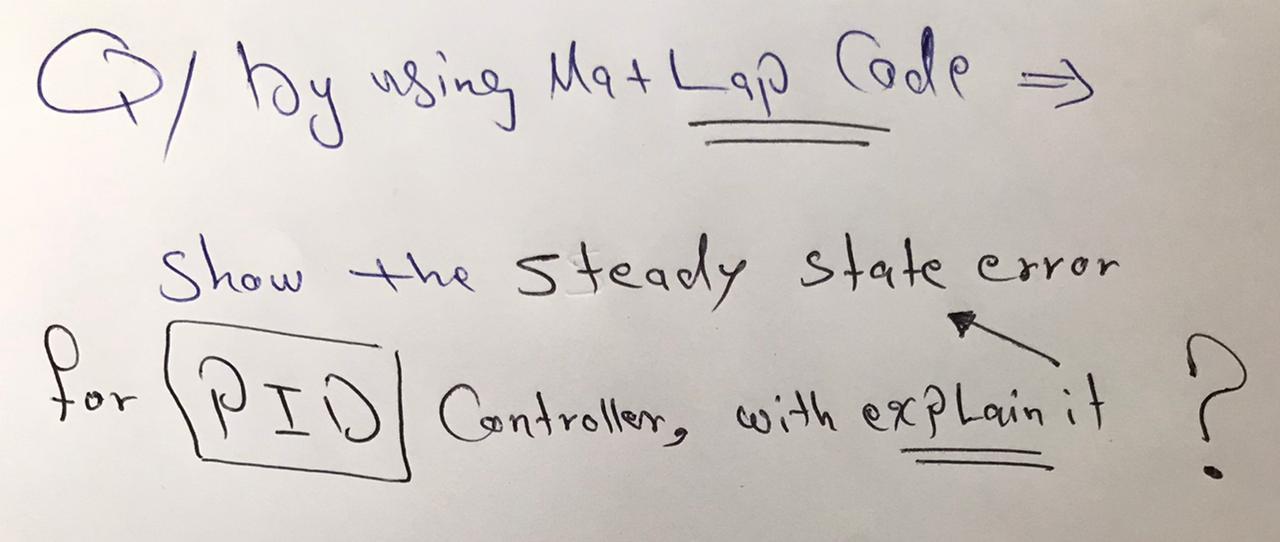 Q/ by using MatLap Code ⇒
show the steady state error
for PID Controller, with explain it ?